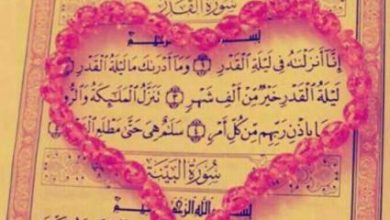 سُورَةُ القَدْرِ
بِسْمِ
إِنَّا أَنزَلْنَٰهُ فِى لَيْلَةِ ٱلْقَدْرِ ١ وَمَآ أَدْرَىٰكَ مَا لَيْلَةُ ٱلْقَدْرِ ٢
لَيْلَةُ ٱلْقَدْرِ خَيْرٌ مِّنْ أَلْفِ شَهْرٍ ٣ تَنَزَّلُ ٱلْمَلَٰٓئِكَةُ
بِإِذْنِ رَبِّهِم مِّن كُلِّ أَمْرٍ ٤ سَلَٰمٌ هِىَ حَتَّىٰ مَطْلَعِ
سُورَةُ البَيِّنَةِ
بِسْمِ ٱللَّهِ